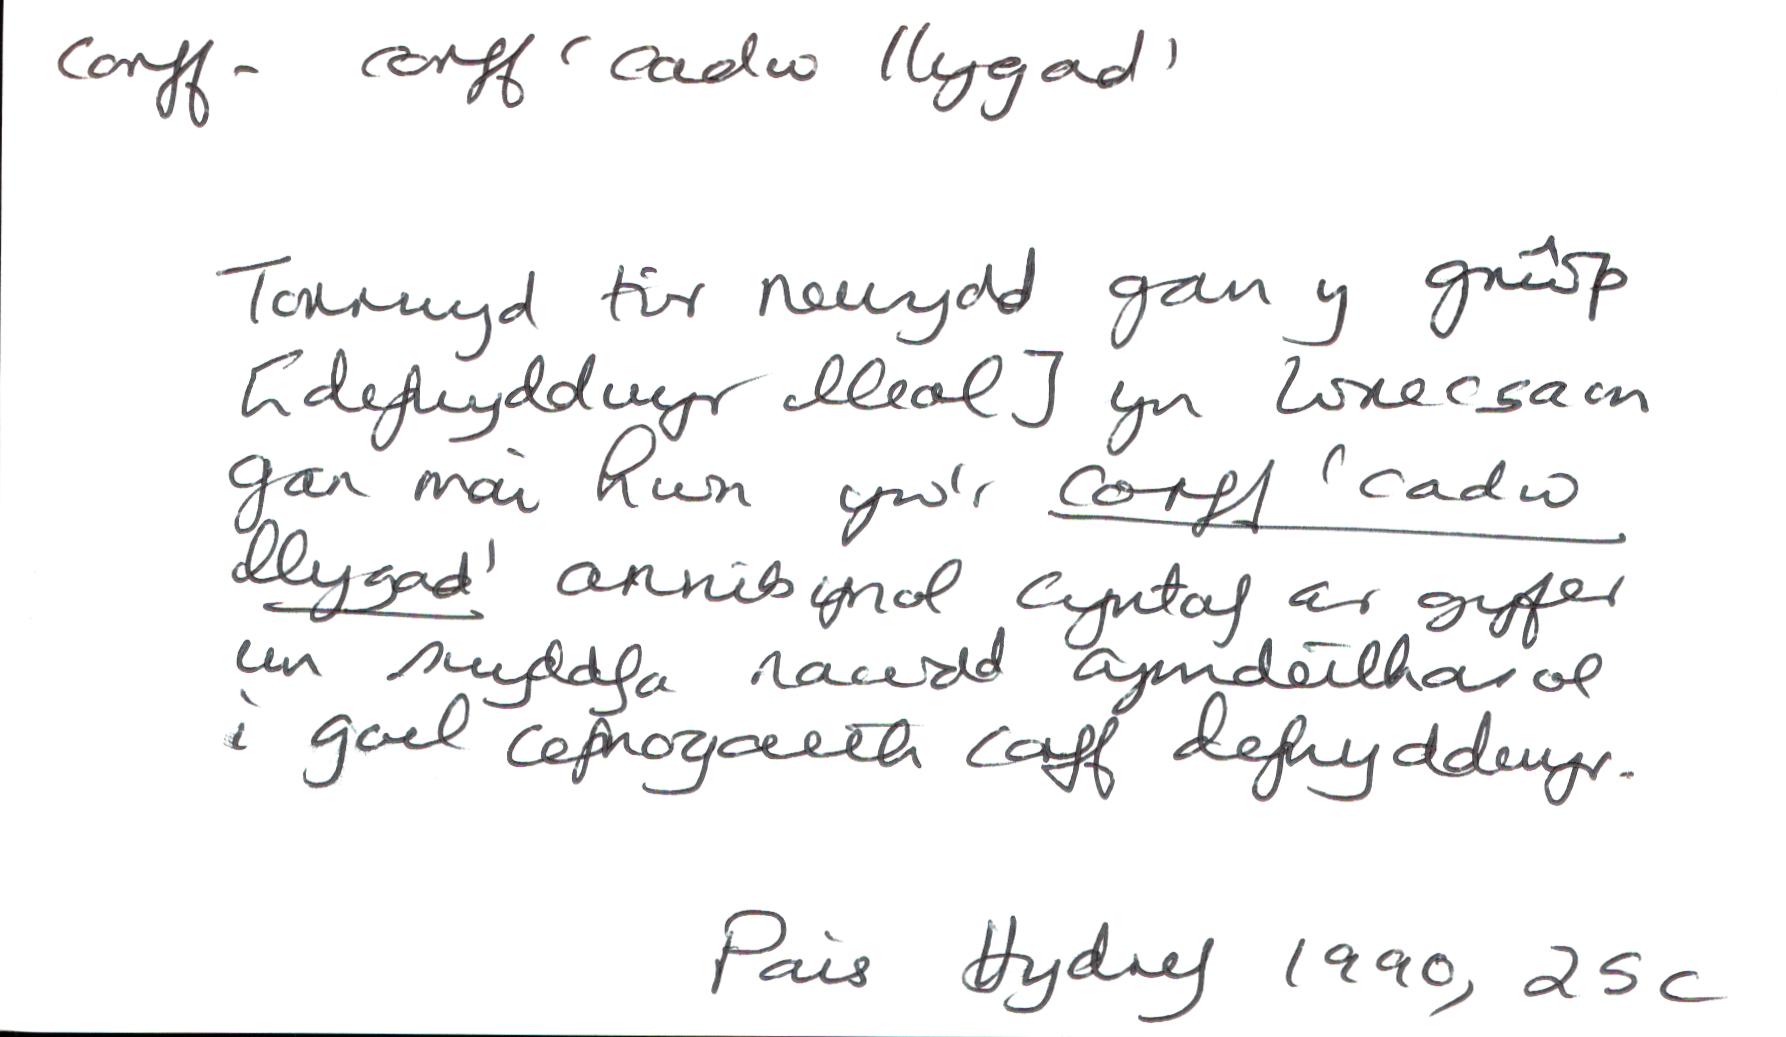 corff - corff 'cadw llygad'
Torrwyd tir newydd gan y grŵp
[defnyddwyr lleol] yn Wrecsam
gan mai hwn yw'r corff 'cadw
llygad' annibynol cyntaf ar gyfer
un swyddfa nawdd cymdeithasol
i gael cefnogaeth caff defnyddwyr.
Pais Hydref 1990, 25c